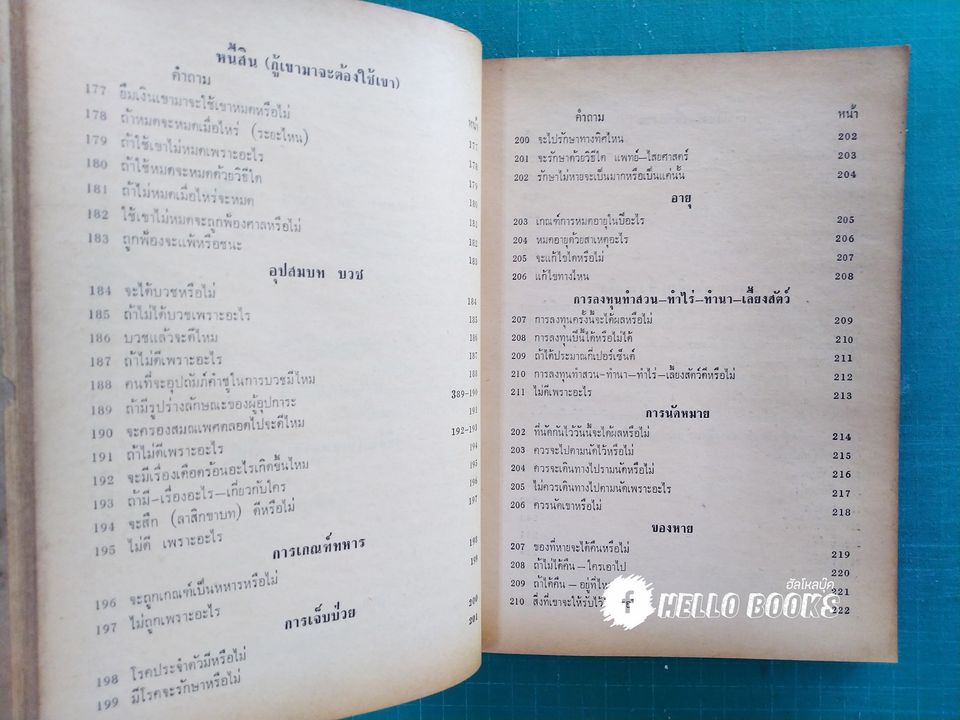 หนี้สิน (กู้เขามาจะต้องใช้เขา)
คำถาม หน้า
177 ยืมเงินเขามาจะใช้เขาหมดหรือไม่ 177
178 ถ้าหมดจะหมดเมื่อไหร่ (ระยะไหน) 178
179 ถ้าใช้เขาไม่หมดเพราะอะไร 179
180 ถ้าใช้หมดจะหมดด้วยวิธีใด 180
181 ถ้าไม่หมดเมื่อไหร่จะหมด 181
182 ใช้เขาไม่หมดจะถูกฟ้องศาลหรือไม่ 182
183 ถูกฟ้องจะแพ้หรือชนะ 183
อุปสมบท บวช
184 จะได้บวชหรือไม่ 184
185 ถ้าไม่ได้บวชเพราะอะไร 185
186 บวชแล้วจะดีไหม 186
187 ถ้าไม่ดีเพราะอะไร 187
188 คนที่จะอุปถัมภ์ค้ำชูในการบวชมีไหม 188
189 ถ้ามีรูปร่างลักษณะของผู้อุปการะ 389-190
190 จะครองสมณเพศตลอดไปจะดีไหม 191
191 ถ้าไม่ดีเพราะอะไร 192-193
192 จะมีเรื่องเดือดร้อนอะไรเกิดขึ้นไหม 194
193 ถ้ามี-เรื่องอะไร-เกี่ยวกับใคร 195
194 จะสึก (ลาสิกขาบท) ดีหรือไม่ 196
195 ไม่ดี เพราะอะไร 197
การเกณฑ์ทหาร
196 จะถูกเกณฑ์เป็นทหารหรือไม่ 198
197 ไม่ถูกเพราะอะไร 199
การเจ็บป่วย
198 โรคประจำตัวมีหรือไม่ 200
199 มีโรคจะรักษาหรือไม่ 201
คำถาม หน้า
200 จะไปรักษาทางทิศไหน 202
201 จะรักษาด้วยวิธีใด แพทย์-ไสยศาสตร์ 203
202 รักษาไม่หายจะเป็นมากหรือเป็นแค่นั้น 204
อายุ
203 เกณฑ์การหมดอายุในปีอะไร 205
204 หมดอายุด้วยสาเหตุอะไร 206
205 จะแก้ไขได้หรือไม่ 207
206 แก้ไขทางไหน 208
การลงทุนทำสวน-ทำไร่-ทำนา-เลี้ยงสัตว์
207 การลงทุนครั้งนี้จะได้ผลหรือไม่ 209
208 การลงทุนปีนี้ได้หรือไม่ได้ 210
209 ถ้าได้ประมาณกี่เปอร์เซ็นต์ 211
210 การลงทุนทำสวน-ทำนา-ทำไร่-เลี้ยงสัตว์ดีหรือไม่ 212
211 ไม่ดีเพราะอะไร 213
การนัดหมาย
202 ที่นัดกันไว้วันนี้จะได้ผลหรือไม่ 214
203 ควรจะไปตามนัดไว้หรือไม่ 215
204 ควรจะเดินทางไปตามนัดหรือไม่ 216
205 ไม่ควรเดินทางไปตามนัดเพราะอะไร 217
206 ควรนัดเขาหรือไม่ 218
ของหาย
207 ของที่หายจะได้คืนหรือไม่ 219
208 ถ้าไม่ได้คืน-ใครเอาไป 220
209 ถ้าได้คืน-อยู่ที่ไหน 221
210 สิ่งที่เขาจะให้รับไว้ 222
ฮัลโหลบุ๊ค
HELLO BOOKS